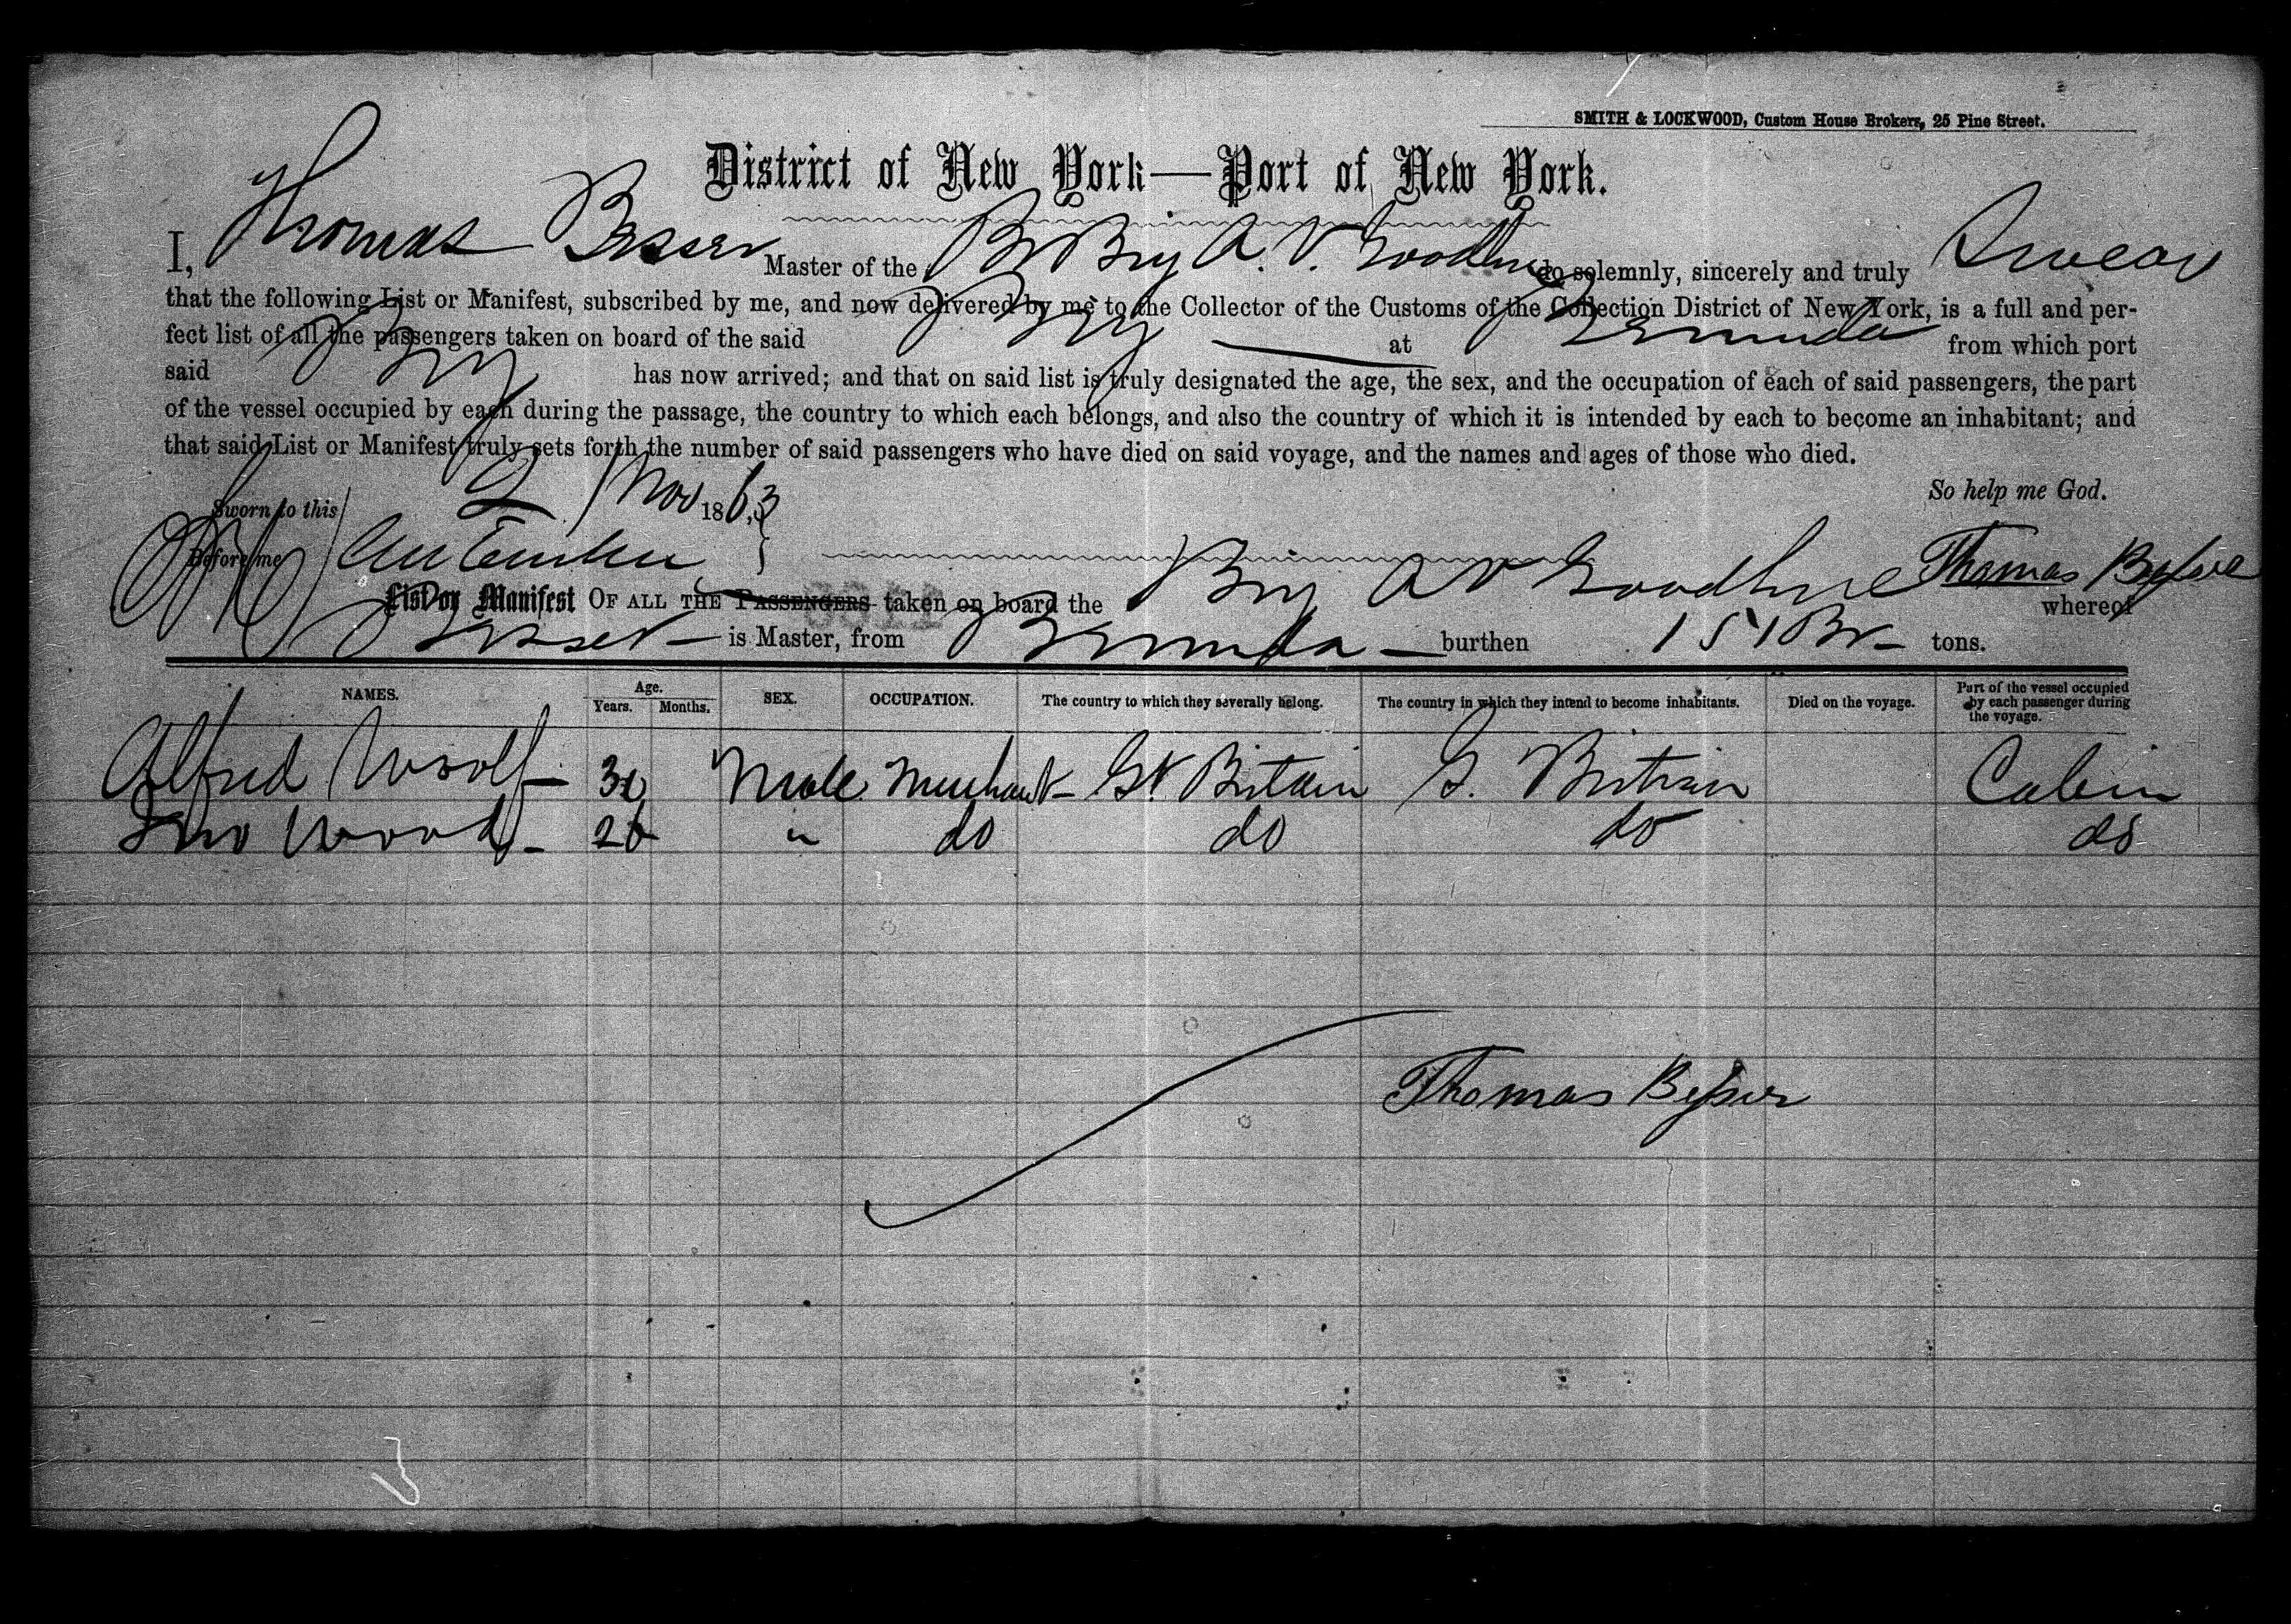 SMITH & LOCKWOOD, Custom House Brokers, 25 Pine Street.
District of New York—Port of New York.
I, Thomas Besser Master of the Br Brig A. V. Goodhue do solemnly, sincerely and truly Swear
that the following List or Manifest, subscribed by me, and now delivered by me to the Collector of the Customs of the Collection District of New York, is a full and per-
fect list of all the passengers taken on board of the said Brig at Bermuda from which port
said Brig has now arrived; and that on said list is truly designated the age, the sex, and the occupation of each of said passengers, the part
of the vessel occupied by each during the passage, the country to which each belongs, and also the country of which it is intended by each to become an inhabitant; and
that said List or Manifest truly sets forth the number of said passengers who have died on said voyage, and the names and ages of those who died.
So help me God.
Sworn to this 2 Nov 1863
Before me
Thomas Besser
List or Manifest OF ALL THE PASSENGERS taken on board the Brig A V Goodhue whereof
Besser is Master, from Bermuda burthen 151 Br tons.
NAMES. Age. Years. Months. SEX. OCCUPATION. The country to which they severally belong. The country in which they intend to become inhabitants. Died on the voyage. Part of the vessel occupied by each passenger during the voyage.
Alfred Woolf Male Merchant Gt Britain G. Britain Cabin
Jno Wood 26 " do do do do
Thomas Besser